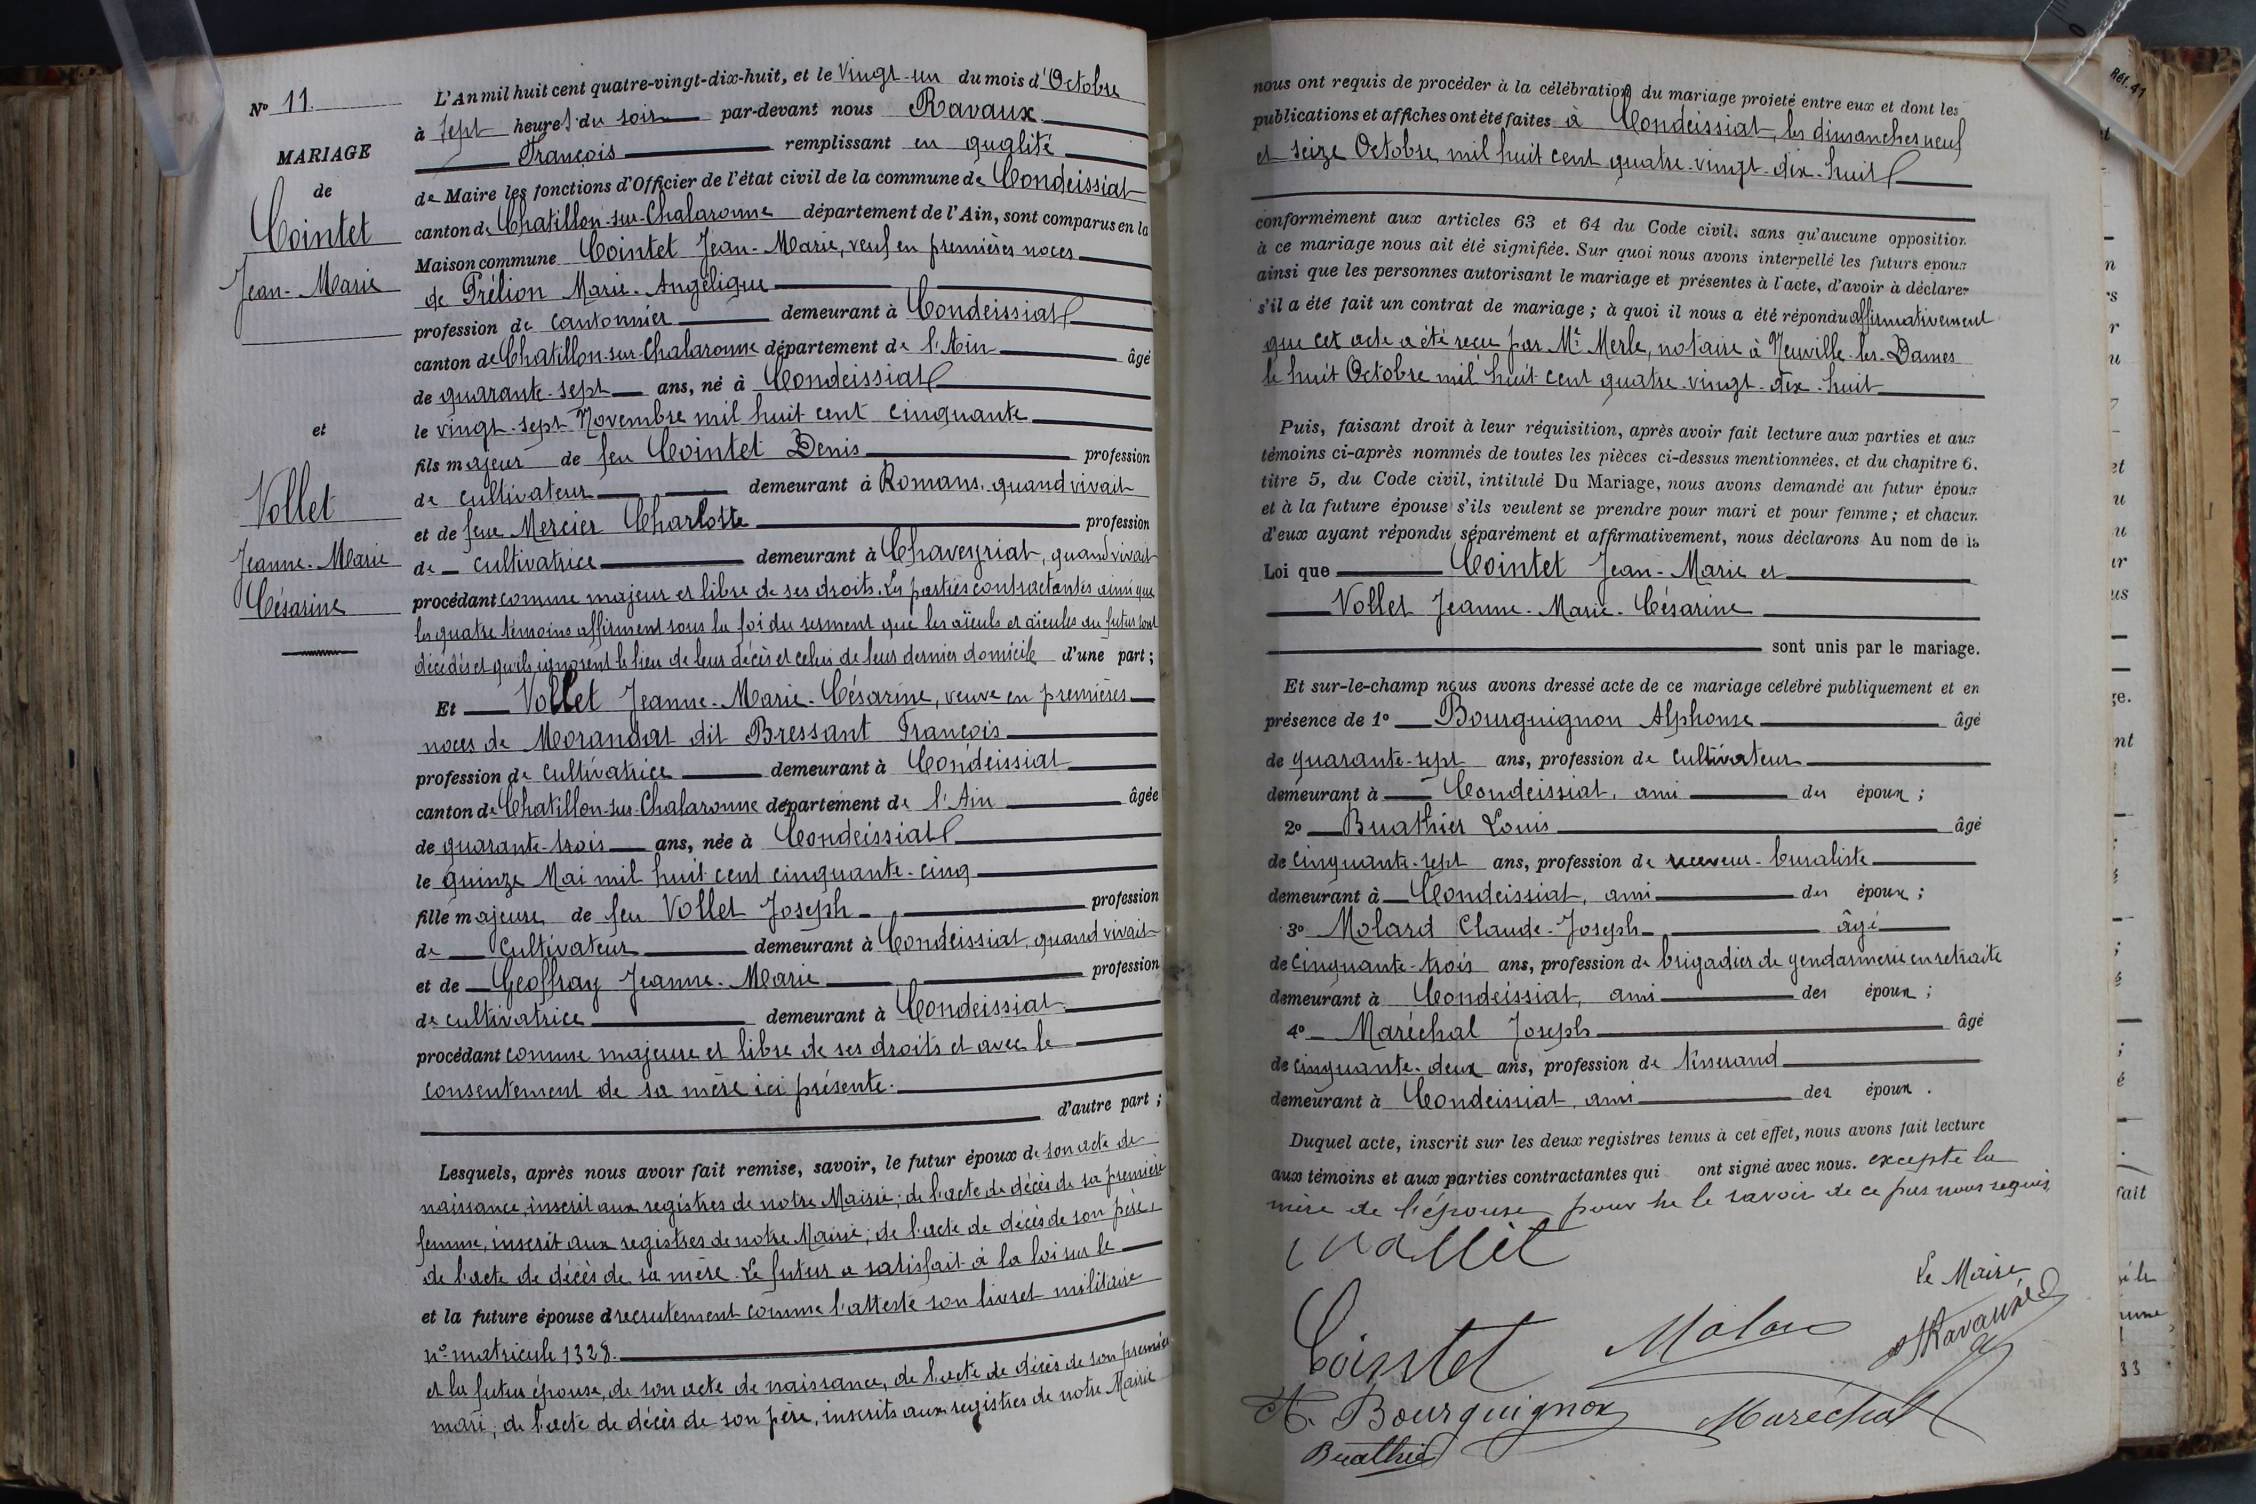 N° 11.
MARIAGE
de
Cointet
Jean-Marie
et
Vollet
Jeanne-Marie
Césarine
L'An mil huit cent quatre-vingt-dix-huit, et le Vingt-un du mois d'Octobre
à sept heures du soir par-devant nous Ravaux
François remplissant en qualité
de Maire les fonctions d'Officier de l'état civil de la commune de Condeissiat
canton de Chatillon-sur-Chalaronne département de l'Ain, sont comparus en la
Maison commune Cointet Jean-Marie, veuf en premières noces
de Prélion Marie-Angélique
profession de cantonnier demeurant à Condeissiat
canton de Chatillon-sur-Chalaronne département de l'Ain âgé
de quarante-sept ans, né à Condeissiat
le vingt-sept Novembre mil huit cent cinquante
fils majeur de feu Cointet Denis profession
de cultivateur demeurant à Romans, quand vivait
et de feue Mercier Charlotte profession
de cultivatrice demeurant à Chaveyriat, quand vivait
procédant comme majeur et libre de ses droits. Les parties contractantes ainsi que
les quatre témoins affirment sous la foi du serment que les aïeuls et aïeules du futur sont
décédés et qu'ils ignorent le lieu de leur décès et celui de leur dernier domicile d'une part ;
Et Vollet Jeanne-Marie-Césarine, veuve en premières
noces de Morandat dit Bressant François
profession de cultivatrice demeurant à Condeissiat
canton de Chatillon-sur-Chalaronne département de l'Ain âgée
de quarante-trois ans, née à Condeissiat
le quinze Mai mil huit cent cinquante-cinq
fille majeure de feu Vollet Joseph profession
de cultivateur demeurant à Condeissiat, quand vivait
et de Geoffray Jeanne-Marie profession
de cultivatrice demeurant à Condeissiat
procédant comme majeure et libre de ses droits et avec le
consentement de sa mère ici présente.
d'autre part ;
Lesquels, après nous avoir fait remise, savoir, le futur époux de son acte de
naissance, inscrit aux registres de notre Mairie ; de l'acte de décès de sa première
femme, inscrit aux registres de notre Mairie ; de l'acte de décès de son père,
de l'acte de décès de sa mère. Le futur a satisfait à la loi sur le
et la future épouse d recrutement comme l'atteste son livret militaire
n° matricule 1328.
et la future épouse, de son acte de naissance, de l'acte de décès de son premier
mari ; de l'acte de décès de son père, inscrits aux registres de notre Mairie
nous ont requis de procéder à la célébration du mariage projeté entre eux et dont les
publications et affiches ont été faites à Condeissiat, les dimanches neuf
et seize Octobre mil huit cent quatre-vingt-dix-huit
conformément aux articles 63 et 64 du Code civil, sans qu'aucune opposition
à ce mariage nous ait été signifiée. Sur quoi nous avons interpellé les futurs époux
ainsi que les personnes autorisant le mariage et présentes à l'acte, d'avoir à déclarer
s'il a été fait un contrat de mariage ; à quoi il nous a été répondu affirmativement
que cet acte a été reçu par Me Merle, notaire à Neuville-les-Dames
le huit Octobre mil huit cent quatre-vingt-dix-huit
Puis, faisant droit à leur réquisition, après avoir fait lecture aux parties et aux
témoins ci-après nommés de toutes les pièces ci-dessus mentionnées, et du chapitre 6.
titre 5, du Code civil, intitulé Du Mariage, nous avons demandé au futur époux
et à la future épouse s'ils veulent se prendre pour mari et pour femme ; et chacun
d'eux ayant répondu séparément et affirmativement, nous déclarons Au nom de la
Loi que Cointet Jean-Marie et
Vollet Jeanne-Marie-Césarine
sont unis par le mariage.
Et sur-le-champ nous avons dressé acte de ce mariage célébré publiquement et en
présence de 1° Bourguignon Alphonse âgé
de quarante-sept ans, profession de cultivateur
demeurant à Condeissiat, ami des époux ;
2° Buathier Louis âgé
de cinquante-sept ans, profession de receveur-buraliste
demeurant à Condeissiat, ami des époux ;
3° Molard Claude-Joseph âgé
de cinquante-trois ans, profession de brigadier de gendarmerie en retraite
demeurant à Condeissiat, ami des époux ;
4° Maréchal Joseph âgé
de cinquante-deux ans, profession de tisserand
demeurant à Condeissiat, ami des époux.
Duquel acte, inscrit sur les deux registres tenus à cet effet, nous avons fait lecture
aux témoins et aux parties contractantes qui ont signé avec nous. excepté la
mère de l'épouse pour ne le savoir de ce par nous requis,
Le Maire
Cointet
A. Bourguignon
Maréchal
Buathier
Réf. 41